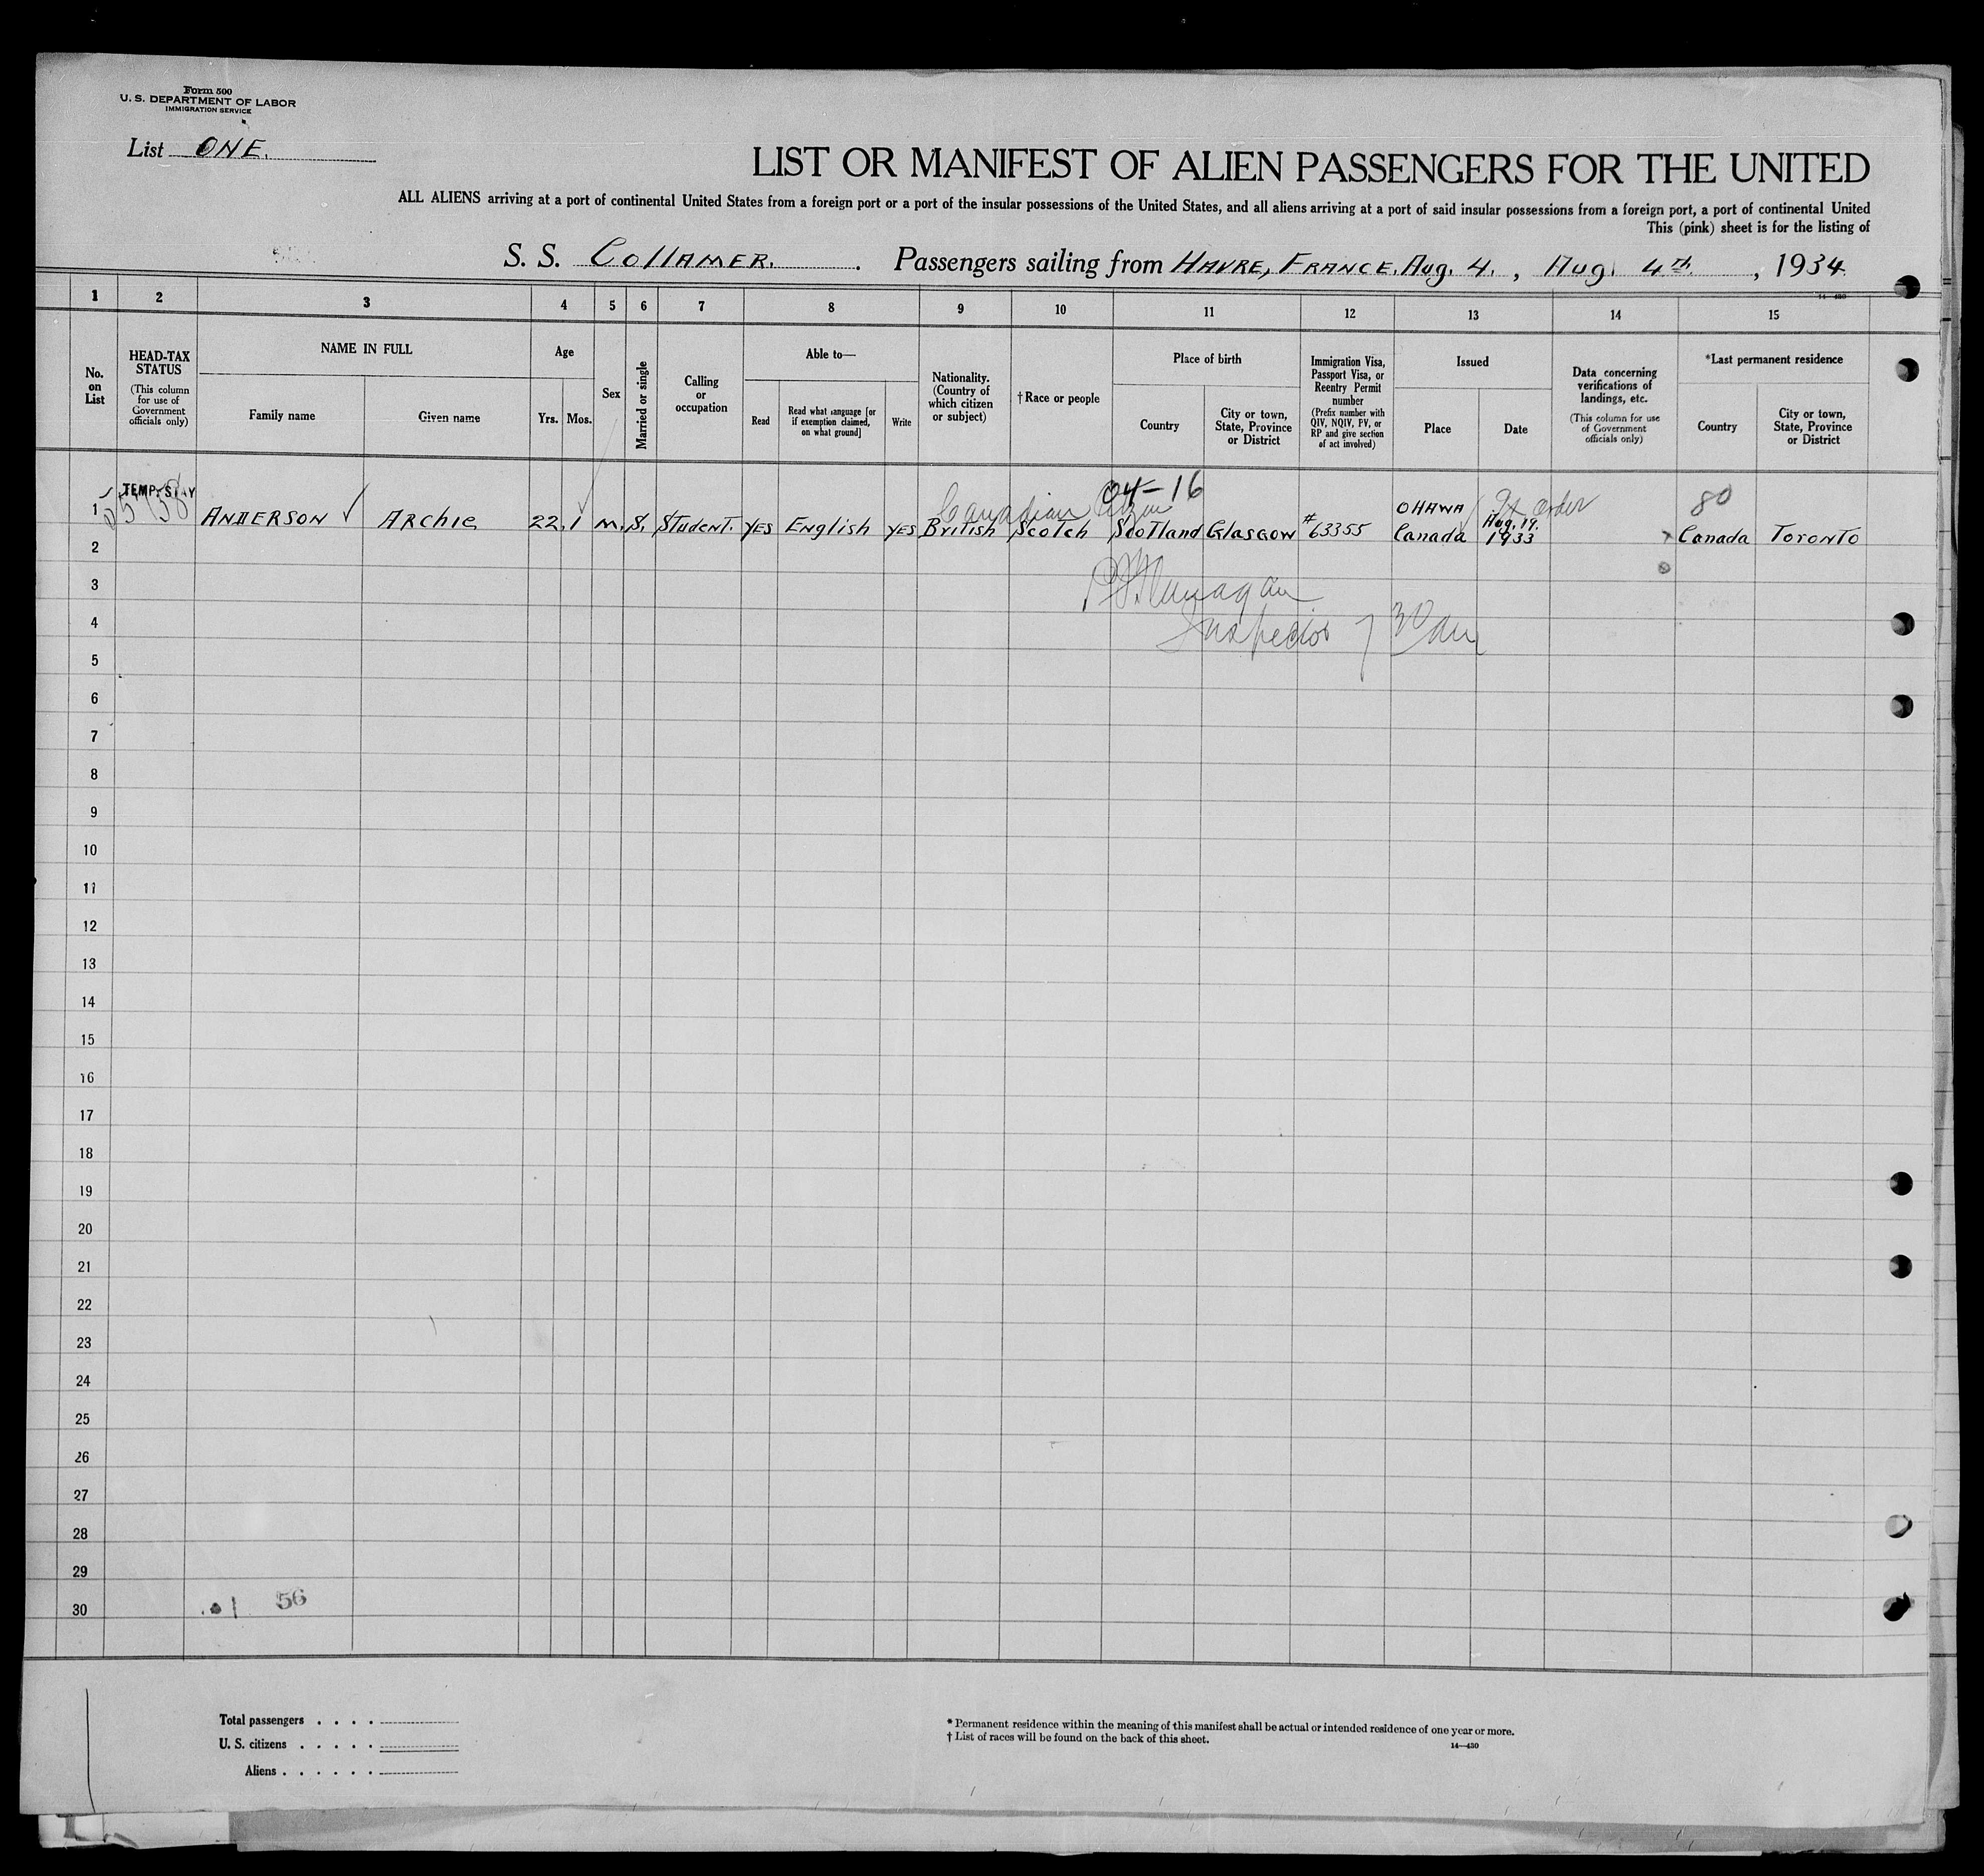 Form 500
U. S. DEPARTMENT OF LABOR
IMMIGRATION SERVICE
List ONE.
LIST OR MANIFEST OF ALIEN PASSENGERS FOR THE UNITED
ALL ALIENS arriving at a port of continental United States from a foreign port or a port of the insular possessions of the United States, and all aliens arriving at a port of said insular possessions from a foreign port, a port of continental United
This (pink) sheet is for the listing of
S. S. Collamer. Passengers sailing from HAVRE, FRANCE. Aug. 4., Aug. 4th, 1934
14-430
1 2 3 4 5 6 7 8 9 10 11 12 13 14 15
No. on List
HEAD-TAX STATUS
(This column for use of Government officials only)
NAME IN FULL
Family name
Given name
Age
Yrs. Mos.
Sex
Married or single
Calling or occupation
Able to—
Read
Read what language [or if exemption claimed, on what ground]
Write
Nationality. (Country of which citizen or subject)
†Race or people
Place of birth
Country
City or town, State, Province or District
Immigration Visa, Passport Visa, or Reentry Permit number
(Prefix number with QIV, NQIV, PV, or RP and give section of act involved)
Issued
Place
Date
Data concerning verifications of landings, etc.
(This column for use of Government officials only)
*Last permanent residence
Country
City or town, State, Province or District
TEMP. STAY
Canadian Citizen
04-16
Ex Order
80
1 ANDERSON Archie 22. 1 M. S. Student. YES English YES British Scotch Scotland Glasgow #63355 OTTAWA Canada Aug. 19. 1933 Canada Toronto
2
3
Flanagan
4
Inspector 7 30 am
5
6
7
8
9
10
11
12
13
14
15
16
17
18
19
20
21
22
23
24
25
26
27
28
29
30
56
Total passengers . . . .
U. S. citizens . . . . .
Aliens . . . . . .
* Permanent residence within the meaning of this manifest shall be actual or intended residence of one year or more.
† List of races will be found on the back of this sheet.
14—430